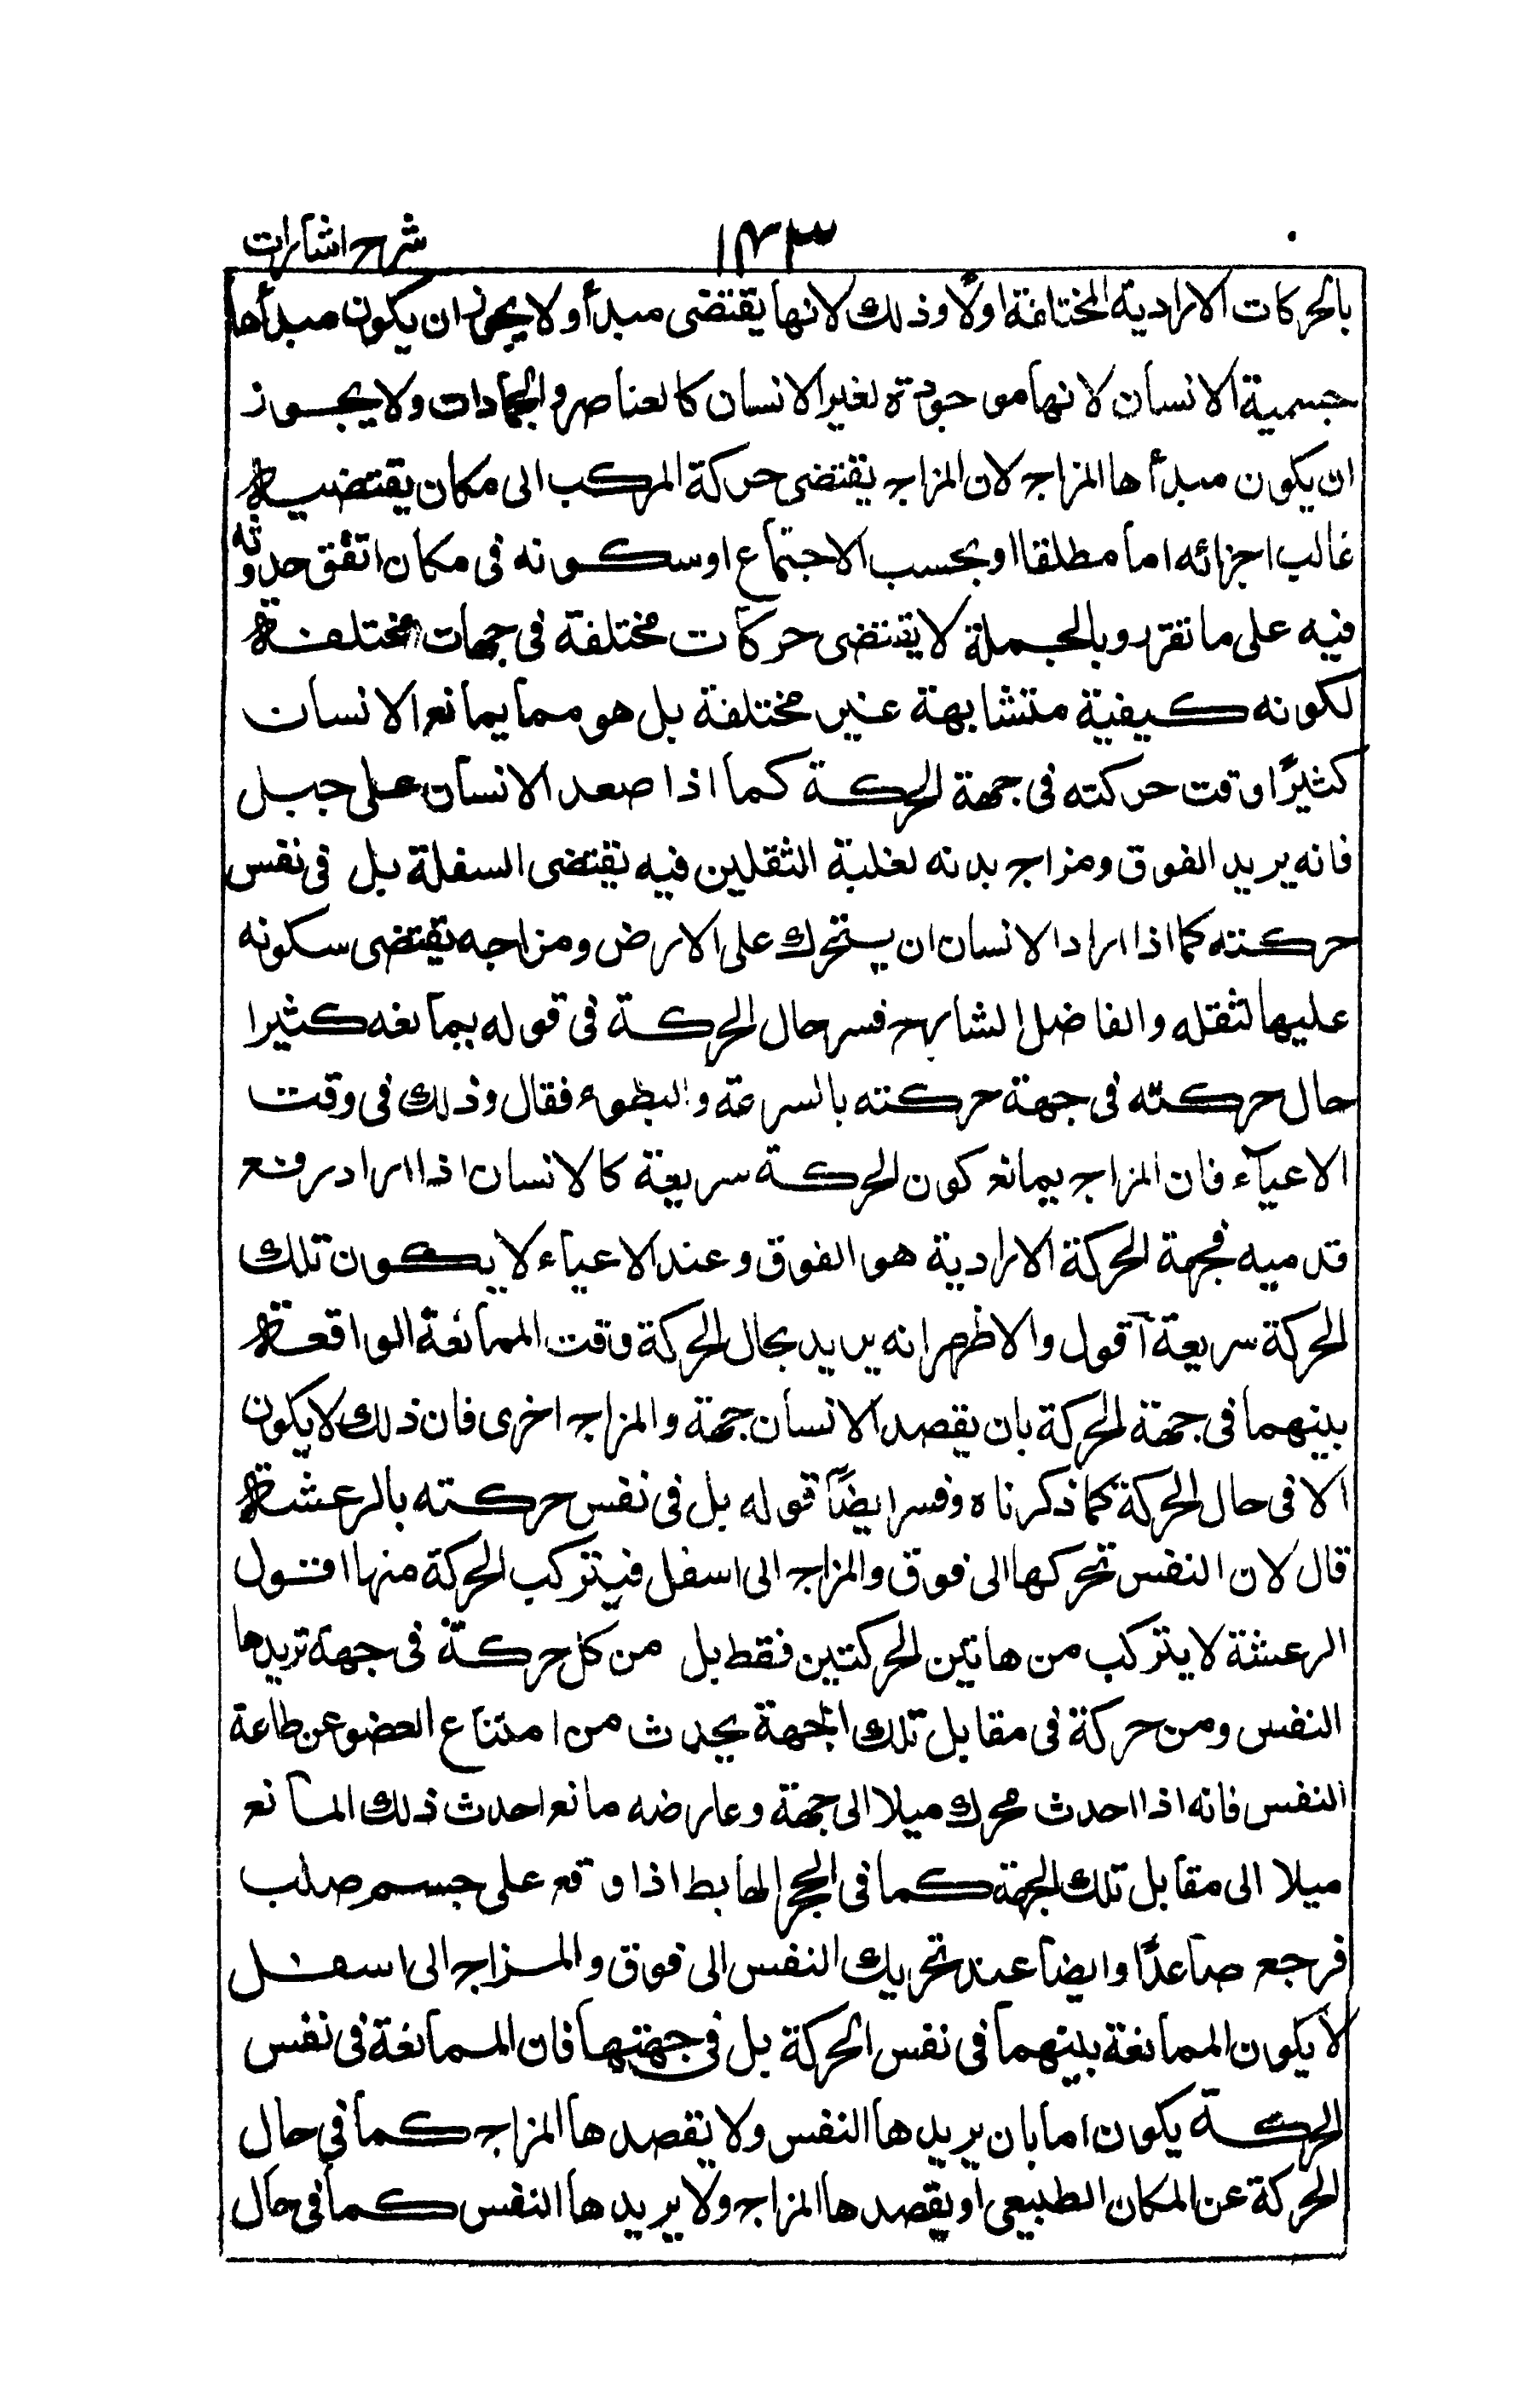 شرح اشارات ١٤٣
بالحركات الارادية المختلفة اولًا وذلك لانها يقتضى مبدأ ولا يجوز ان يكون مبدأها
جسمية الانسان لانها موجودة لغير الانسان كالعناصر والجمادات ولا يجوز
ان يكون مبدأها المزاج لان المزاج يقتضى حركة المركب الى مكان يقتضيه
غالب اجزائه اما مطلقا او بحسب الاجتماع او سكونه فى مكان اتفق حدوثه
فيه على ما تقرر وبالجملة لا يقتضى حركات مختلفة فى جهات مختلفة
لكونه كيفية متشابهة غير مختلفة بل هو مما يمانع الانسان
كثيرًا وقت حركته فى جهة الحركة كما اذا صعد الانسان على جبل
فانه يريد الفوق ومزاج بدنه لغلبة الثقلين فيه يقتضى السفلة بل فى نفس
حركته كما اذا اراد الانسان ان يتحرك على الارض ومزاجه يقتضى سكونه
عليها لثقله والفاضل الشارح فسر حال الحركة فى قوله يمانعه كثيرا
حال حركته فى جهة حركته بالسرعة والبطوء فقال وذلك فى وقت
الاعيآء فان المزاج يمانع كون الحركة سريعة كالانسان اذا اراد رفع
قدميه فجهة الحركة الارادية هو الفوق وعند الاعياء لا يكون تلك
الحركة سريعة آقول والاظهر انه يريد بحال الحركة وقت الممانعة الواقعة
بينهما فى جهة الحركة بان يقصد الانسان جهة والمزاج اخرى فان ذلك لا يكون
الا فى حال الحركة كما ذكرناه وفسر ايضًا قوله بل فى نفس حركته بالرعشة
قال لان النفس تحركها الى فوق والمزاج الى اسفل فيتركب الحركة منها اقول
الرعشة لا يتركب من هاتين الحركتين فقط بل من كل حركة فى جهة تريدها
النفس ومن حركة فى مقابل تلك الجهة يحدث من امتناع العضو عن طاعة
النفس فانه اذا احدث محرك ميلا الى جهة وعارضه مانع احدث ذلك المانع
ميلا الى مقابل تلك الجهة كما فى الحجر الهابط اذا وقع على جسم صلب
فرجع صاعدًا وايضا عند تحريك النفس الى فوق والمزاج الى اسفل
لا يكون الممانعة بينهما فى نفس الحركة بل فى جهتها فان الممانعة فى نفس
الحركة يكون اما بان يريدها النفس ولا يقصدها المزاج كما فى حال
الحركة عن المكان الطبيعى او يقصدها المزاج ولا يريدها النفس كما فى حال